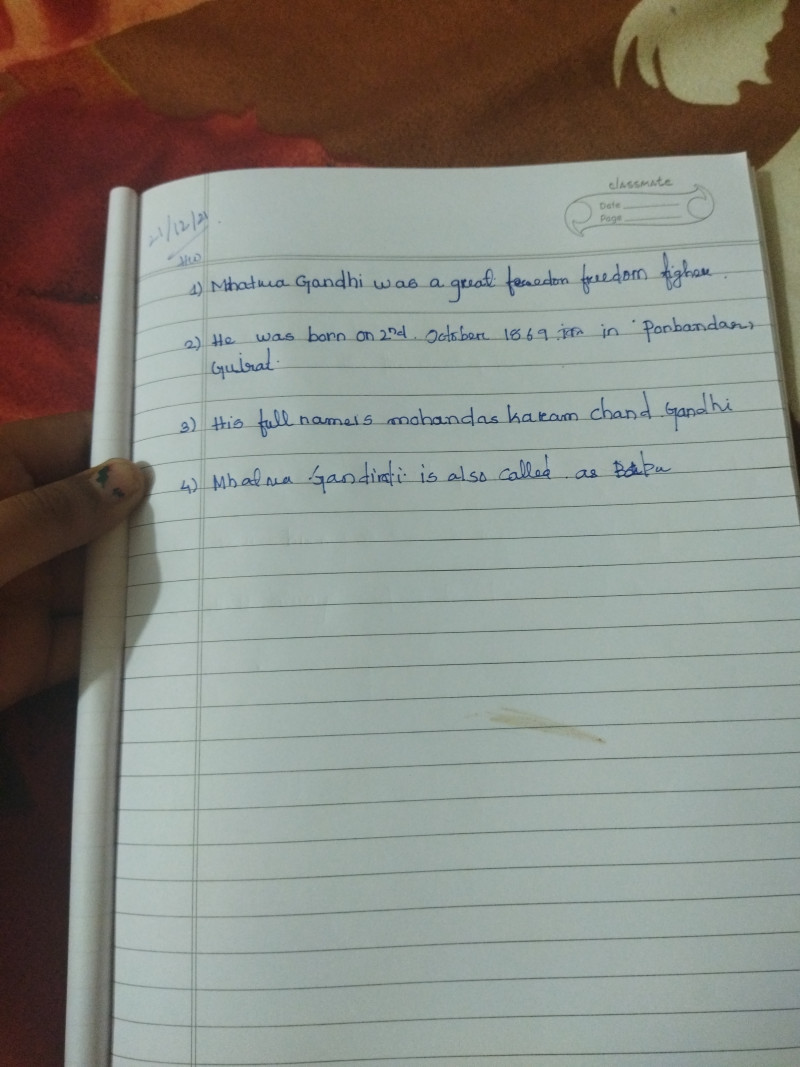 classmate
Date
Page
21/12/21
HW
1) Mhatma Gandhi was a great freedom figher.
2) He was born on 2nd October 1869 in Porbandar,
Gujrat.
3) His full name is mohandas karam chand Gandhi
4) Mhatma Gandhi is also called as